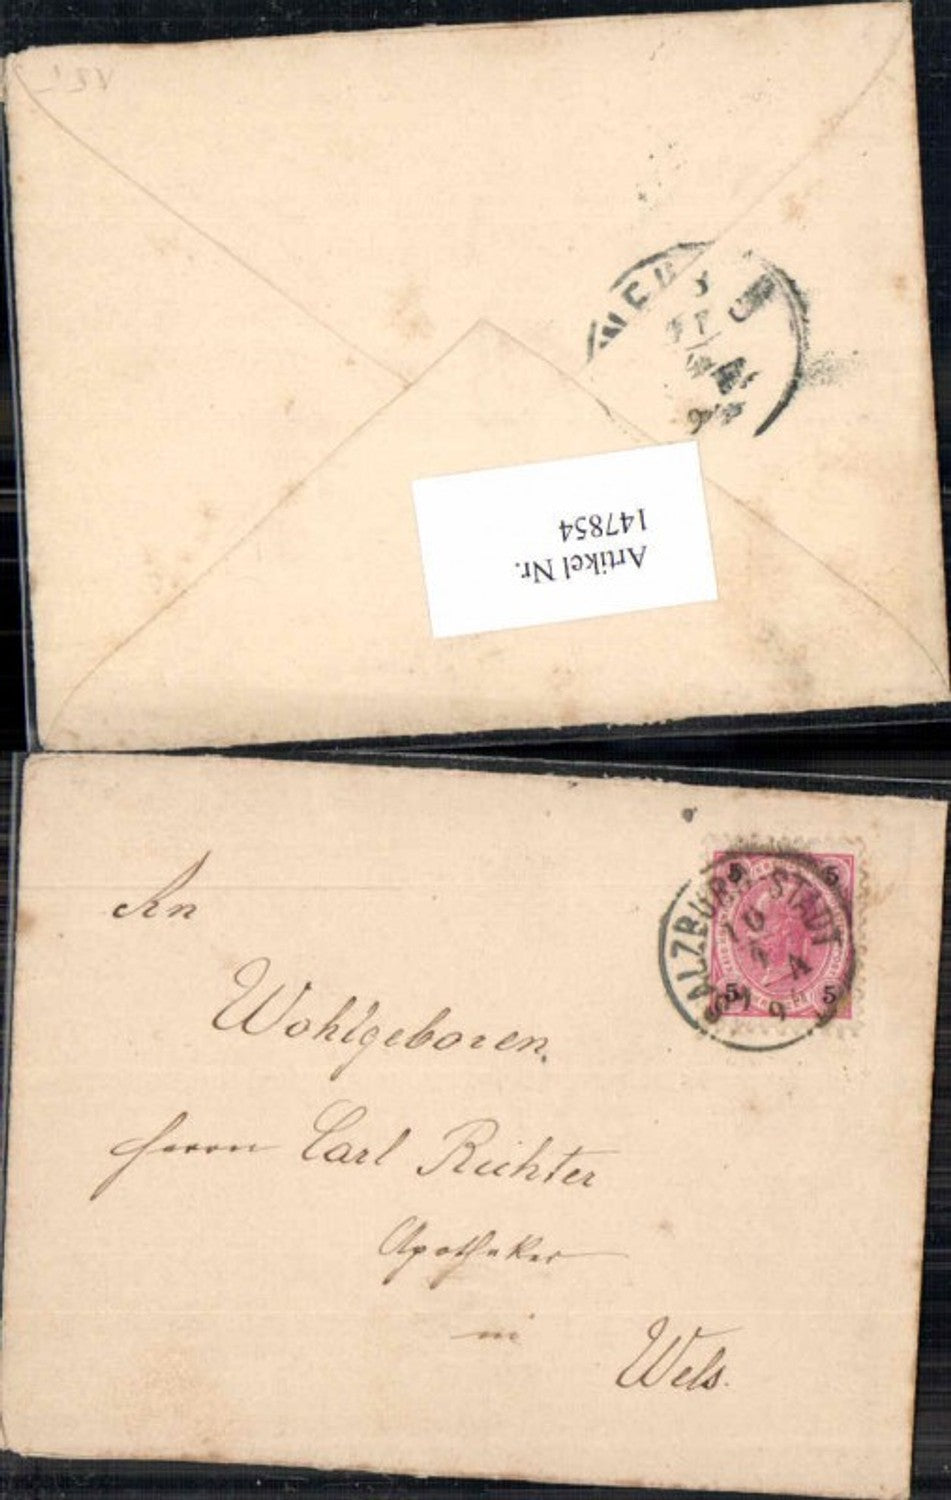 Artikel Nr.
147854
SALZBURG STADT
5 5
5 5
An
Wohlgeboren
Herrn Carl Richter
Apotheker
in
Wels.